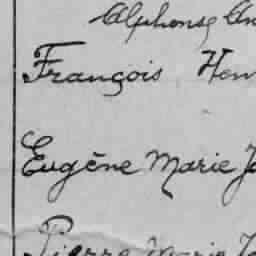 Alphonse
François
Eugène Marie
Pierre Marie